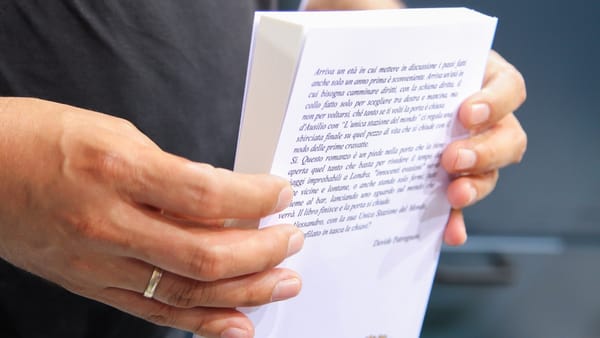 Arriva un età in cui mettere in discussione i passi fatti
anche solo un anno prima è sconveniente. Arriva un'età in
cui bisogna camminare diritti, con la schiena dritta, il
collo fatto solo per scegliere tra destra e mancina, ma
non per voltarsi, ché tanto se ti volti la porta è chiusa.
d'Ausilio con "L'unica stazione del mondo" ci regala una
sbirciata finale su quel pezzo di vita che si chiude con il
nodo delle prime cravatte.
Sì. Questo romanzo è un piede nella porta che la tiene
aperta quel tanto che basta per risedere il tempo
iaggi improbabili a Londra, "innocenti evasioni"
ce vicine e lontane, o anche stando solo fermi
ieme al bar, lanciando uno sguardo sul mondo che
verrà. Il libro finisce e la porta si chiude.
lessandro, con la sua Unica Stazione del Mondo,
filato in tasca le chiavi?
Davide